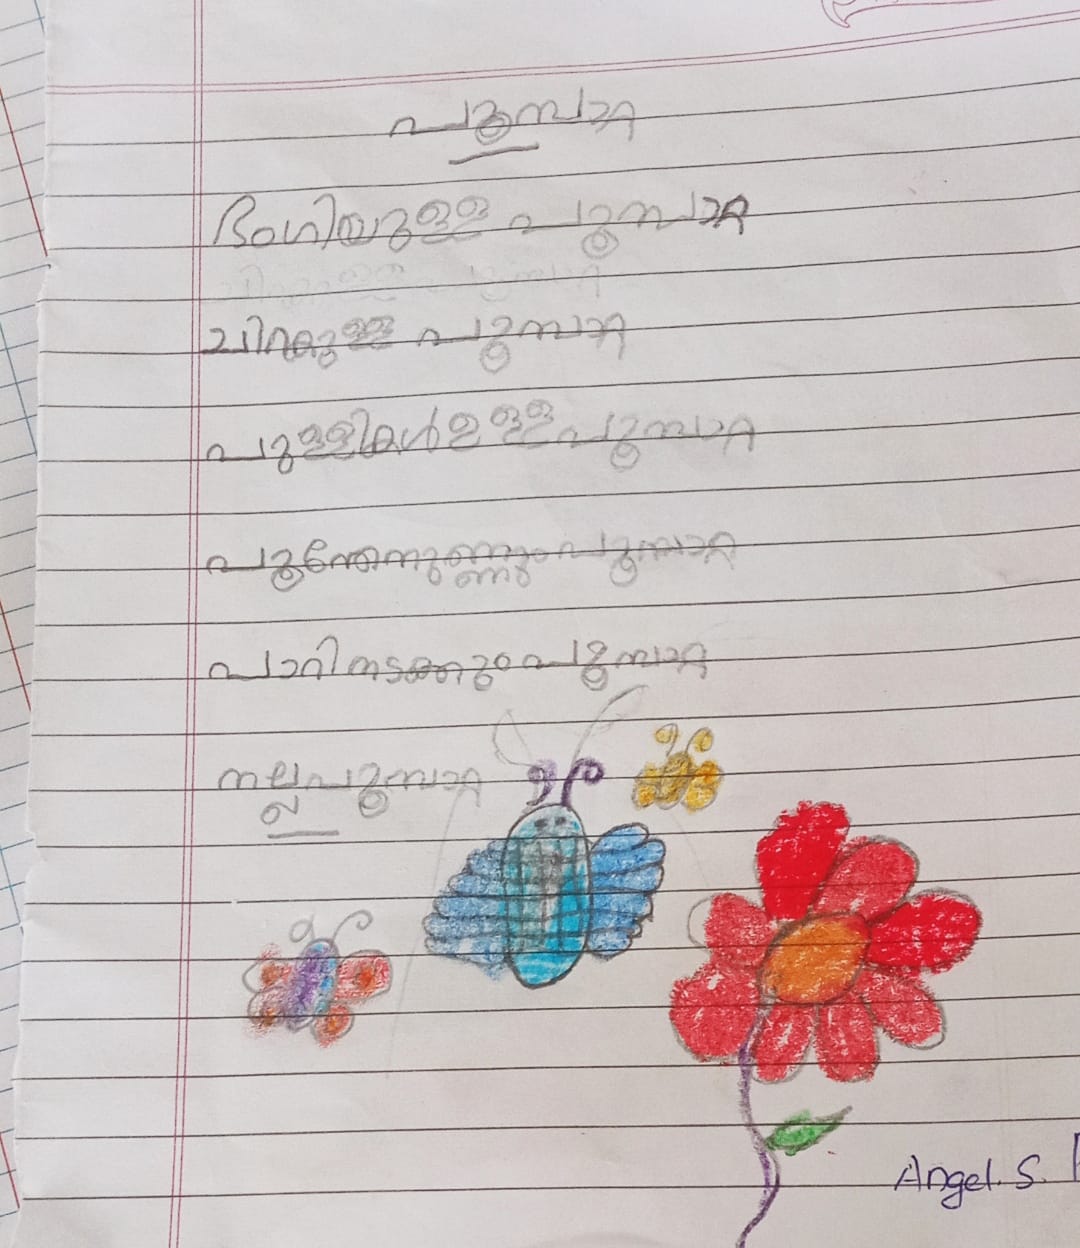 പൂമ്പാറ്റ
ഭംഗിയുള്ള പൂമ്പാറ്റ
ചിറകുള്ള പൂമ്പാറ്റ
പുള്ളികൾ ഉള്ള പൂമ്പാറ്റ
പൂന്തേനുണ്ണും പൂമ്പാറ്റ
പാറി നടക്കും പൂമ്പാറ്റ
നല്ല പൂമ്പാറ്റ
Angel. S.